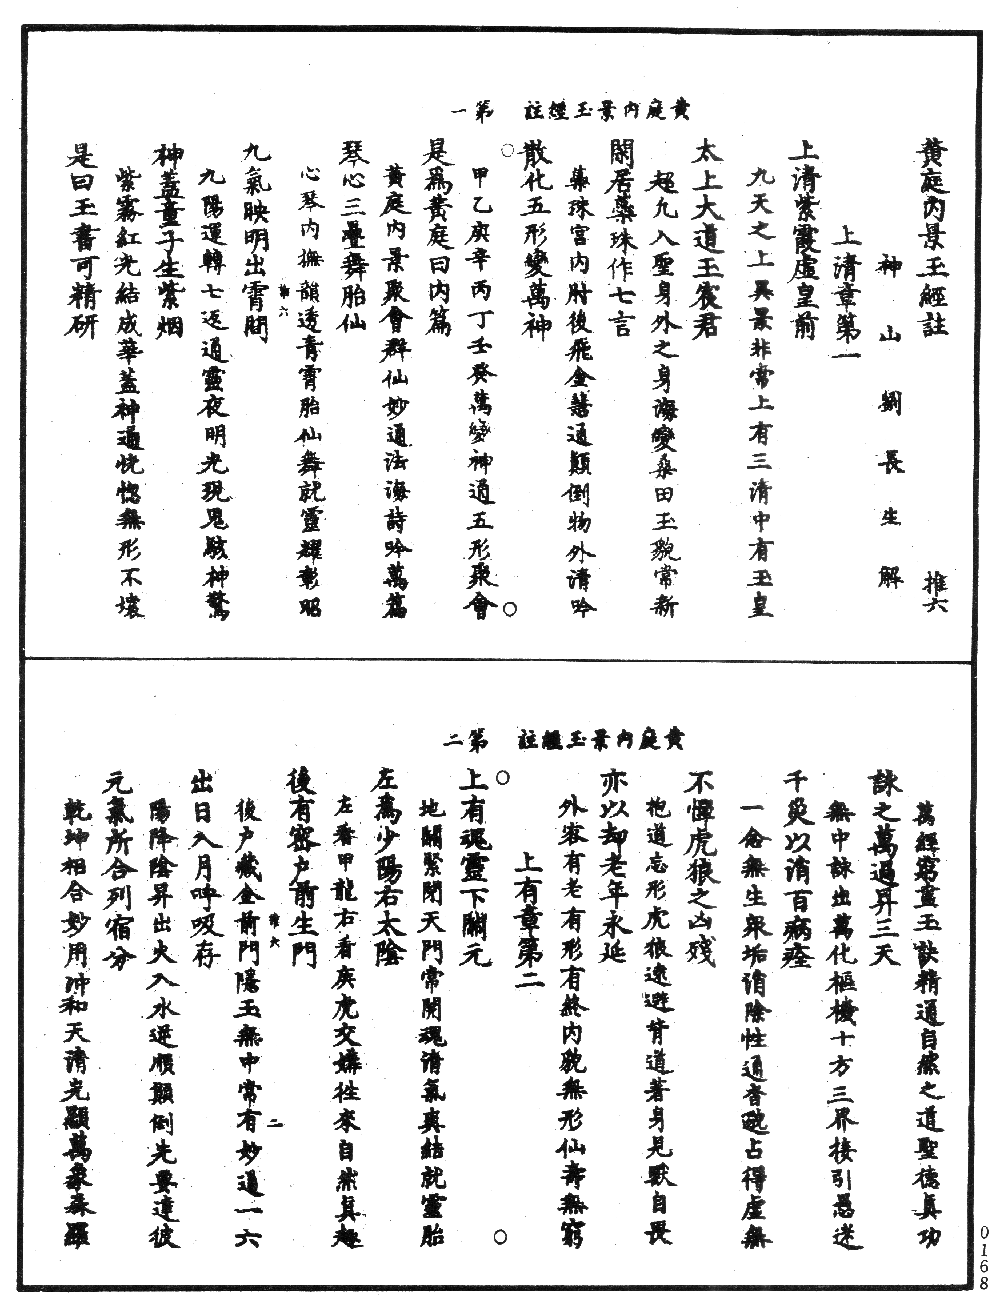 黃庭內景玉經註　第一
黃庭內景玉經註　推六
神山劉長生解
上清章第一
上清紫霞虛皇前
九天之上異景非常上有三清中有玉皇
太上大道玉宸君
超凡入聖身外之身海變桑田玉貌常新
閑居蘂珠作七言
蘂珠宮內肘後飛金慧通顛倒物外清吟
散化五形變萬神
甲乙庚辛丙丁壬癸萬變神通五形聚會
是為黃庭曰內篇
黃庭內景聚會群仙妙通法海詩吟萬篇
琴心三疊舞胎仙
心琴內撫韻透青霄胎仙舞就靈耀彰昭
推六
九氣映明出霄間
九陽運轉七返通靈夜明光現鬼駭神驚
神蓋童子生紫烟
紫霧紅光結成華蓋神通恍惚無形不壞
是曰玉書可精研
黃庭內景玉經註　第二
萬經窮蓋玉訣精通自然之道聖德真功
詠之萬過昇三天
無中詠出萬化樞機十方三界接引愚迷
千災以消百病痊
一念無生眾垢消除性通杳𠖇占得虛無
不憚虎狼之凶殘
抱道忘形虎狼遠避背道著身見獸自畏
亦以却老年永延
外容有老有形有終內貌無形仙壽無窮
上有章第二
上有魂靈下關元
地關緊閉天門常開魂清氣爽結就靈胎
左為少陽右太陰
左看甲龍右看庚虎交媾往來自然真趣
後有密戶前生門
後戶藏金前門隱玉無中常有妙通一六
推六　二
出日入月呼吸存
陽降陰昇出火入水逆順顛倒先要達彼
元氣所合列宿分
乾坤相合妙用冲和天清光顯萬象森羅
0168